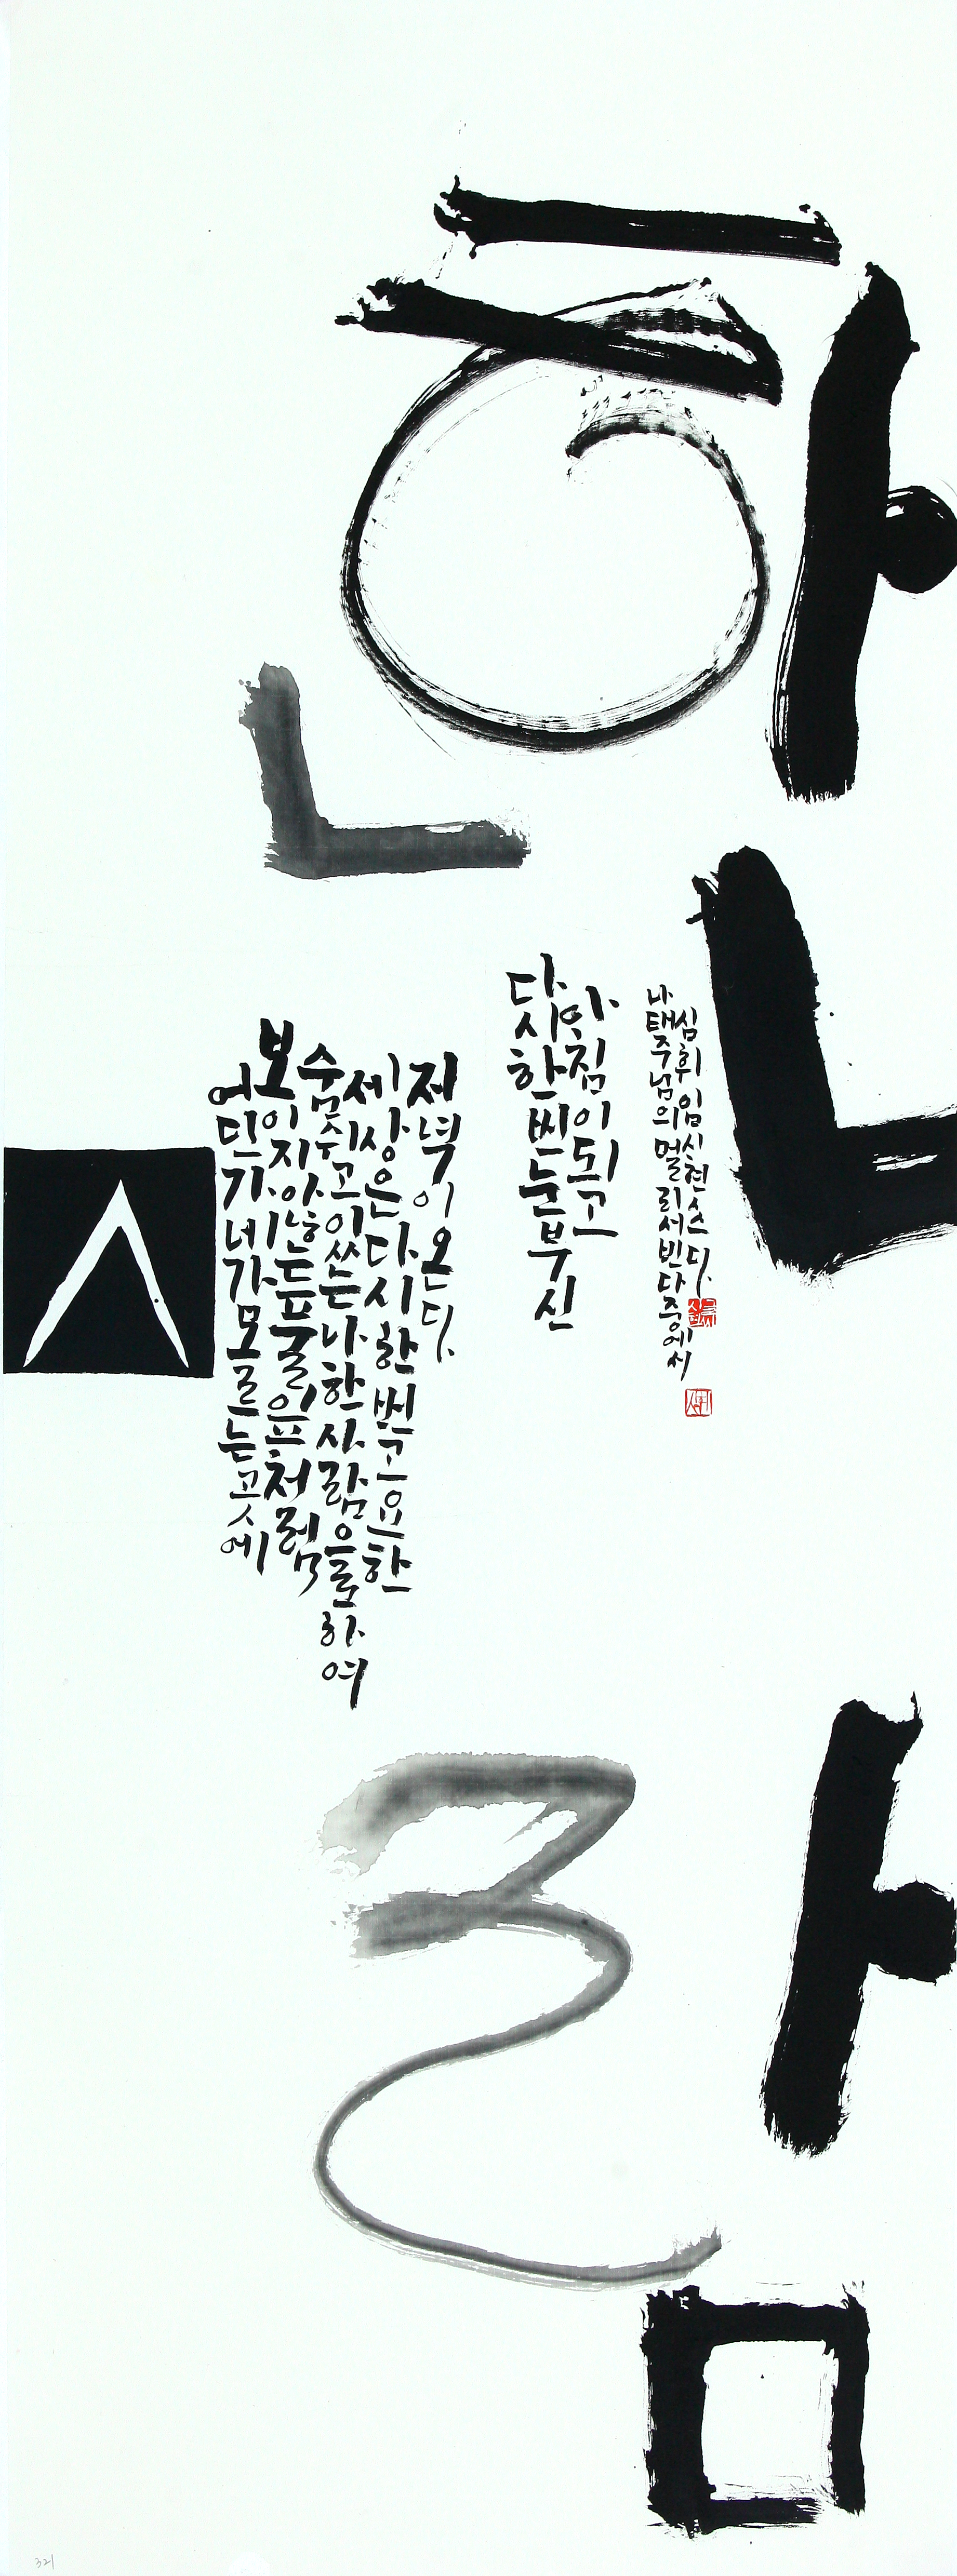 한
사람
다시 한 번 눈부신
아침이 되고
어딘가 네가 모르는 곳에
보이지 않는 풀잎처럼
숨 쉬고 있는 나 한 사람으로 하여
세상은 다시 한 번 고요한
저녁이 온다.
나태주님의 멀리서 빈다 중에서
심휘 임신현 쓰다.
321